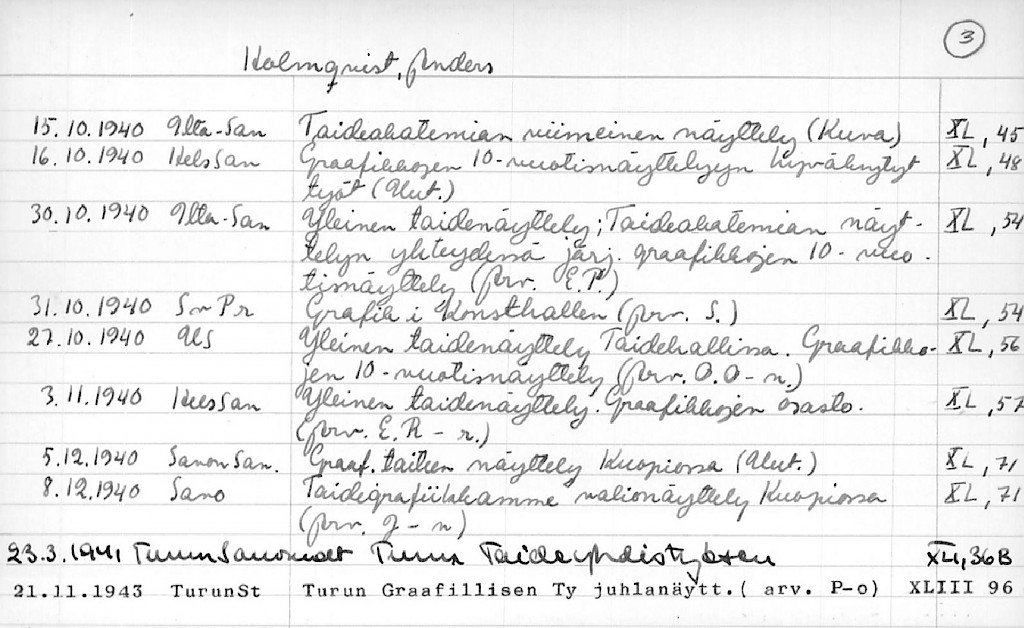 3
Holmqvist, Anders
15.10.1940 Ilta-San Taideakatemian viimeinen näyttely (Kuva) XL, 45
16.10.1940 HelsSan Graafikkojen 10-vuotisnäyttelyyn hyväksytyt XL, 48
työt (Uut.)
30.10.1940 Ilta-San Yleinen taidenäyttely; Taideakatemian näyt- XL, 54
telyn yhteydessä järj. graafikkojen 10-vuo-
tisnäyttely (arv. E.P.)
31.10.1940 Sv Pr Grafik i Konsthallen (arv. S.) XL, 54
27.10.1940 US Yleinen taidenäyttely Taidehallissa. Graafikko- XL, 56
jen 10-vuotisnäyttely (arv. O.O-n.)
3.11.1940 HelsSan Yleinen taidenäyttely. Graafikkojen osasto. XL, 57
(arv. E.R-r.)
5.12.1940 SavonSan. Graaf. taiteen näyttely Kuopiossa (Uut.) XL, 71
8.12.1940 Savo Taidegrafiikkamme valionäyttely Kuopiossa XL, 71
(arv. J-n)
23.3.1941 TurunSanomat Turun Taideyhdistyksen XLI, 36B
21.11.1943 TurunSt Turun Graafillisen Ty juhlanäytt.( arv. P-o) XLIII 96